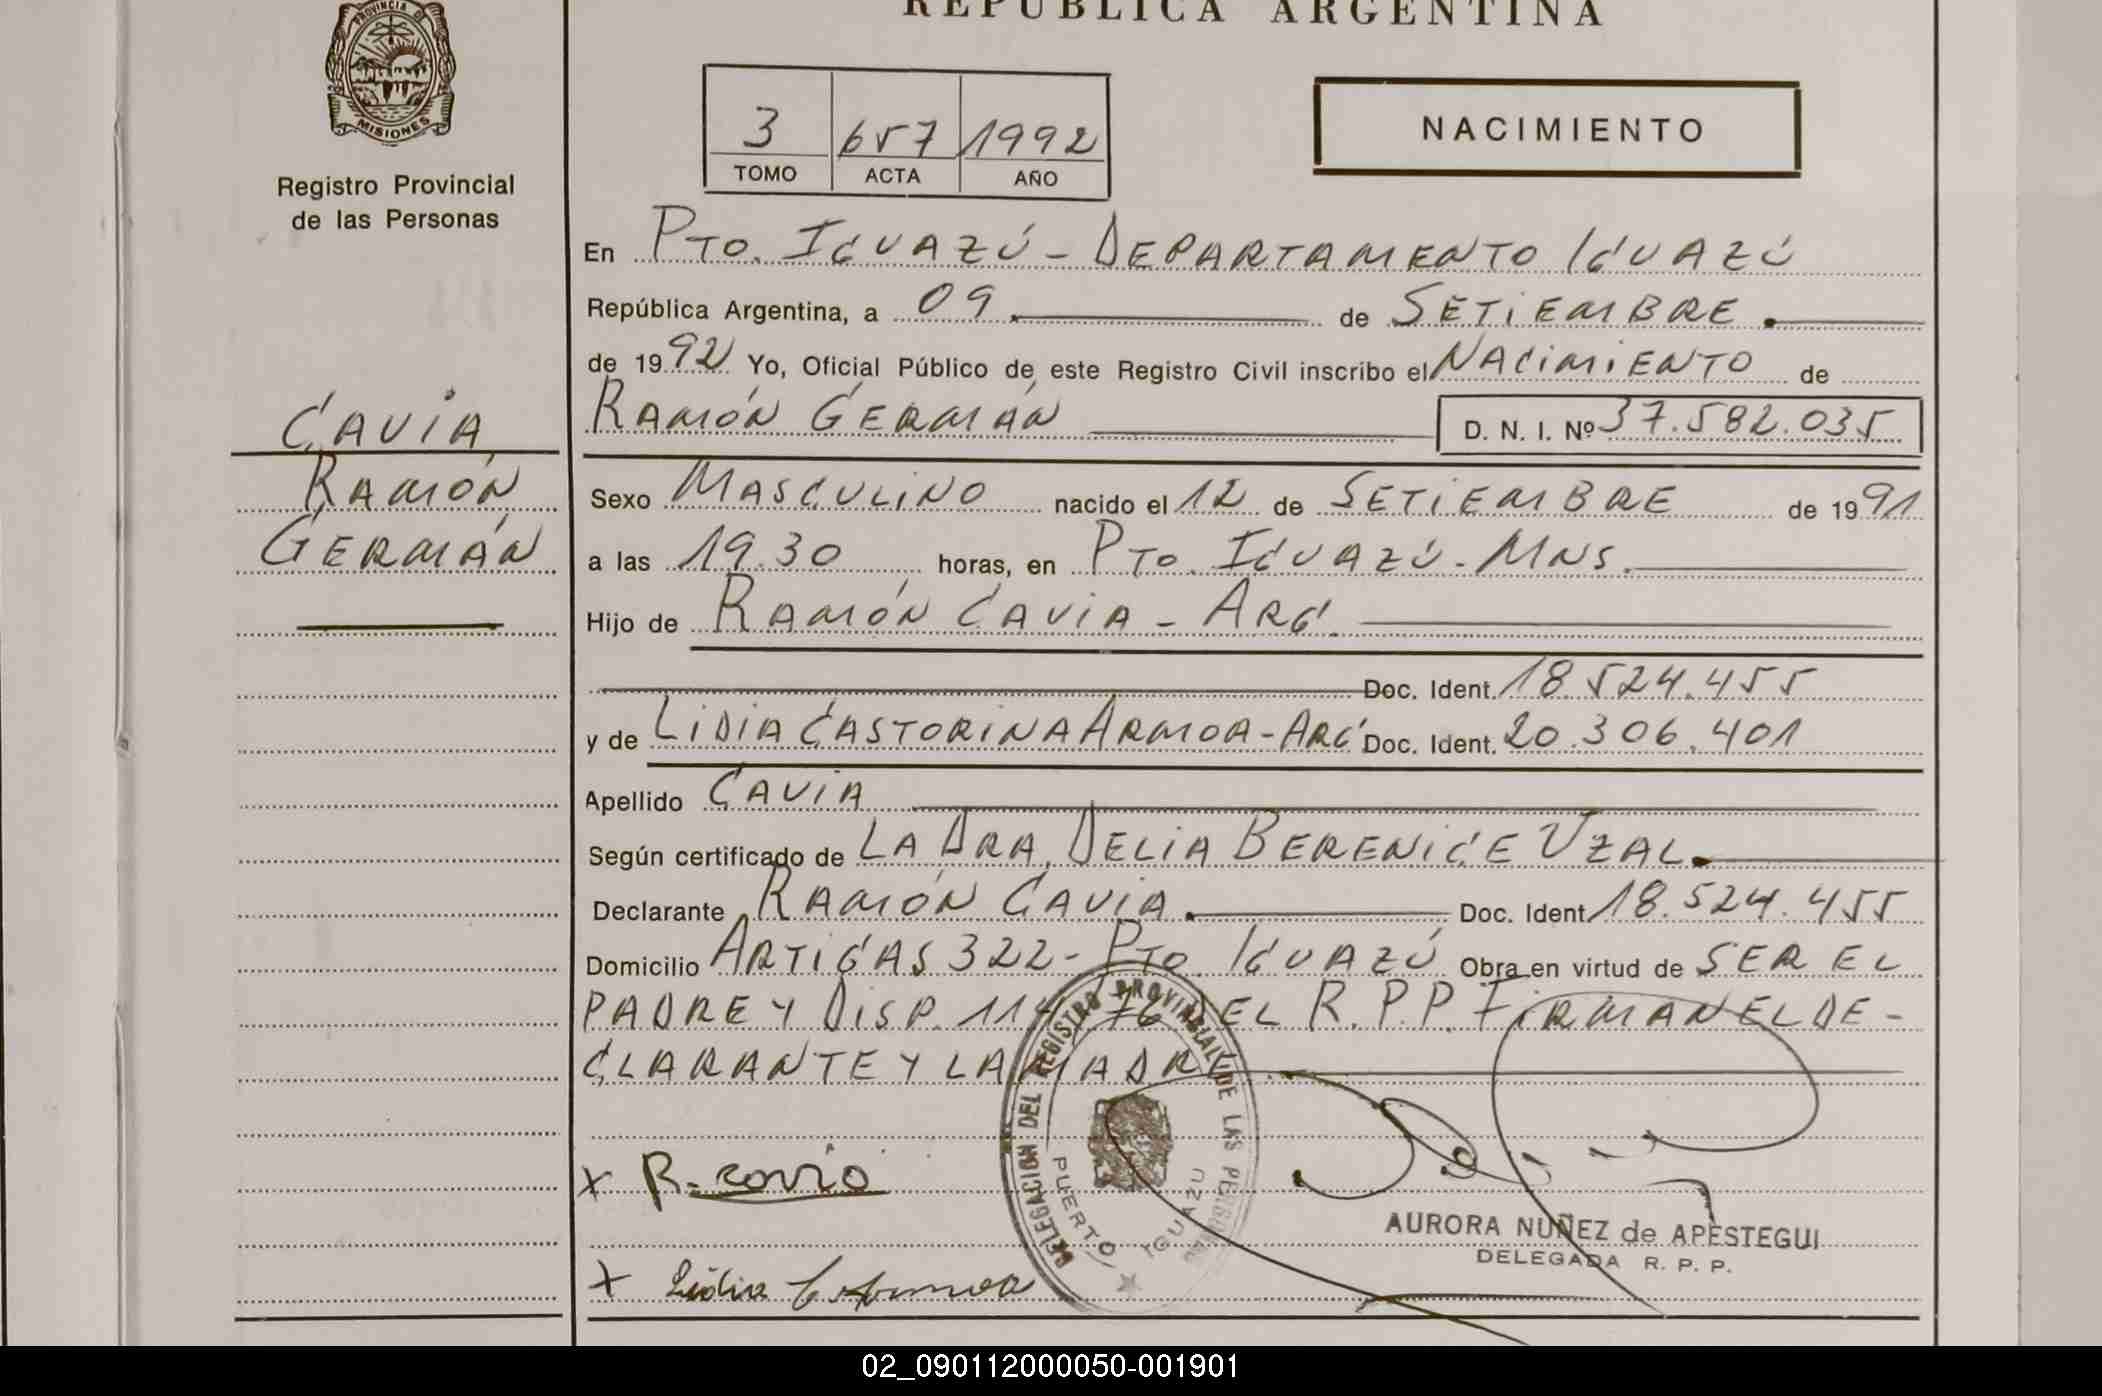 REPUBLICA ARGENTINA
PROVINCIA DE
MISIONES
Registro Provincial
de las Personas
3 657 1992
TOMO ACTA AÑO
NACIMIENTO
En PTO. IGUAZÚ - DEPARTAMENTO IGUAZÚ
República Argentina, a 09 de SETIEMBRE.
de 1992 Yo, Oficial Público de este Registro Civil inscribo el NACIMIENTO de
RAMÓN GERMÁN D. N. I. Nº 37.582.035
CAVIA
RAMÓN
GERMÁN
Sexo MASCULINO nacido el 12 de SETIEMBRE de 1991
a las 19.30 horas, en PTO. IGUAZÚ - MNS.
Hijo de RAMÓN CAVIA - ARG.
Doc. Ident. 18.524.455
y de LIDIA CASTORINA ARMOA - ARG Doc. Ident. 20.306.401
Apellido CAVIA
Según certificado de LA DRA. DELIA BERENICE UZAL.
Declarante RAMÓN CAVIA. Doc. Ident. 18.524.455
Domicilio ARTIGAS 322 - PTO. IGUAZÚ Obra en virtud de SER EL
PADRE Y DISP. 76 DEL R.P.P. FIRMAN EL DE-
CLARANTE Y LA MADRE.
DELEGACION DEL REGISTRO PROVINCIAL DE LAS
PUERTO IGUAZU
X R. Cavia
X Lidia C. Armoa
AURORA NUÑEZ de APESTEGUI
DELEGADA R. P. P.
02_090112000050-001901